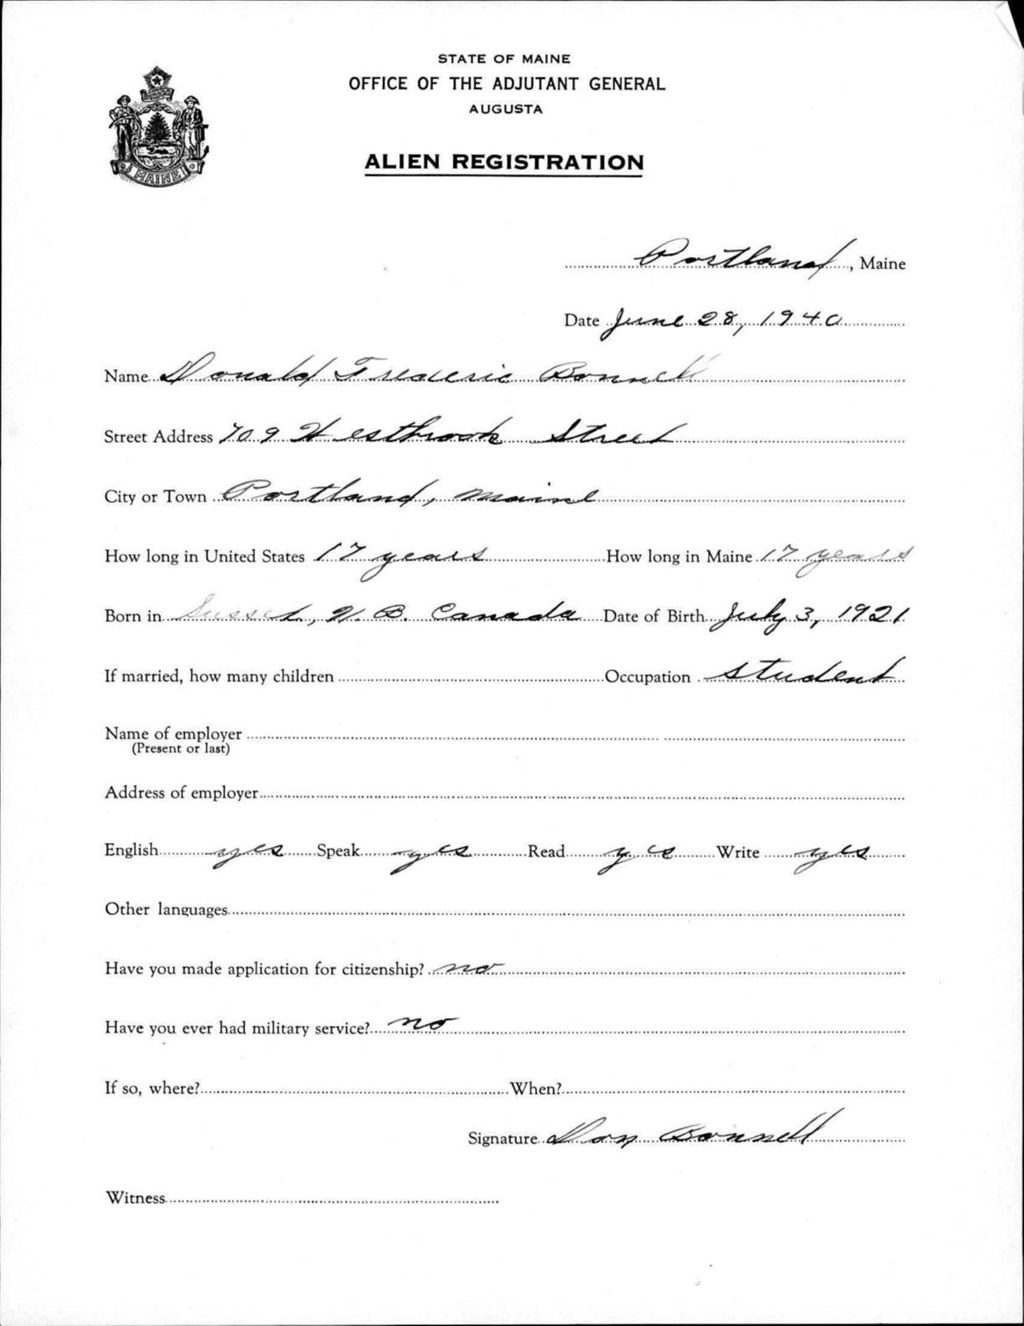 STATE OF MAINE
OFFICE OF THE ADJUTANT GENERAL
AUGUSTA
ALIEN REGISTRATION
MAINE
Portland, Maine
Date June 28, 1940
Name Donald Frederic Bonnell
Street Address 709 Westbrook Street
City or Town Portland, Maine
How long in United States 17 years How long in Maine 17 years
Born in Sussex, N. B. Canada Date of Birth July 3, 1921
If married, how many children Occupation student
Name of employer
(Present or last)
Address of employer
English yes Speak yes Read yes Write yes
Other languages
Have you made application for citizenship? no
Have you ever had military service? no
If so, where? When?
Signature Don Bonnell
Witness